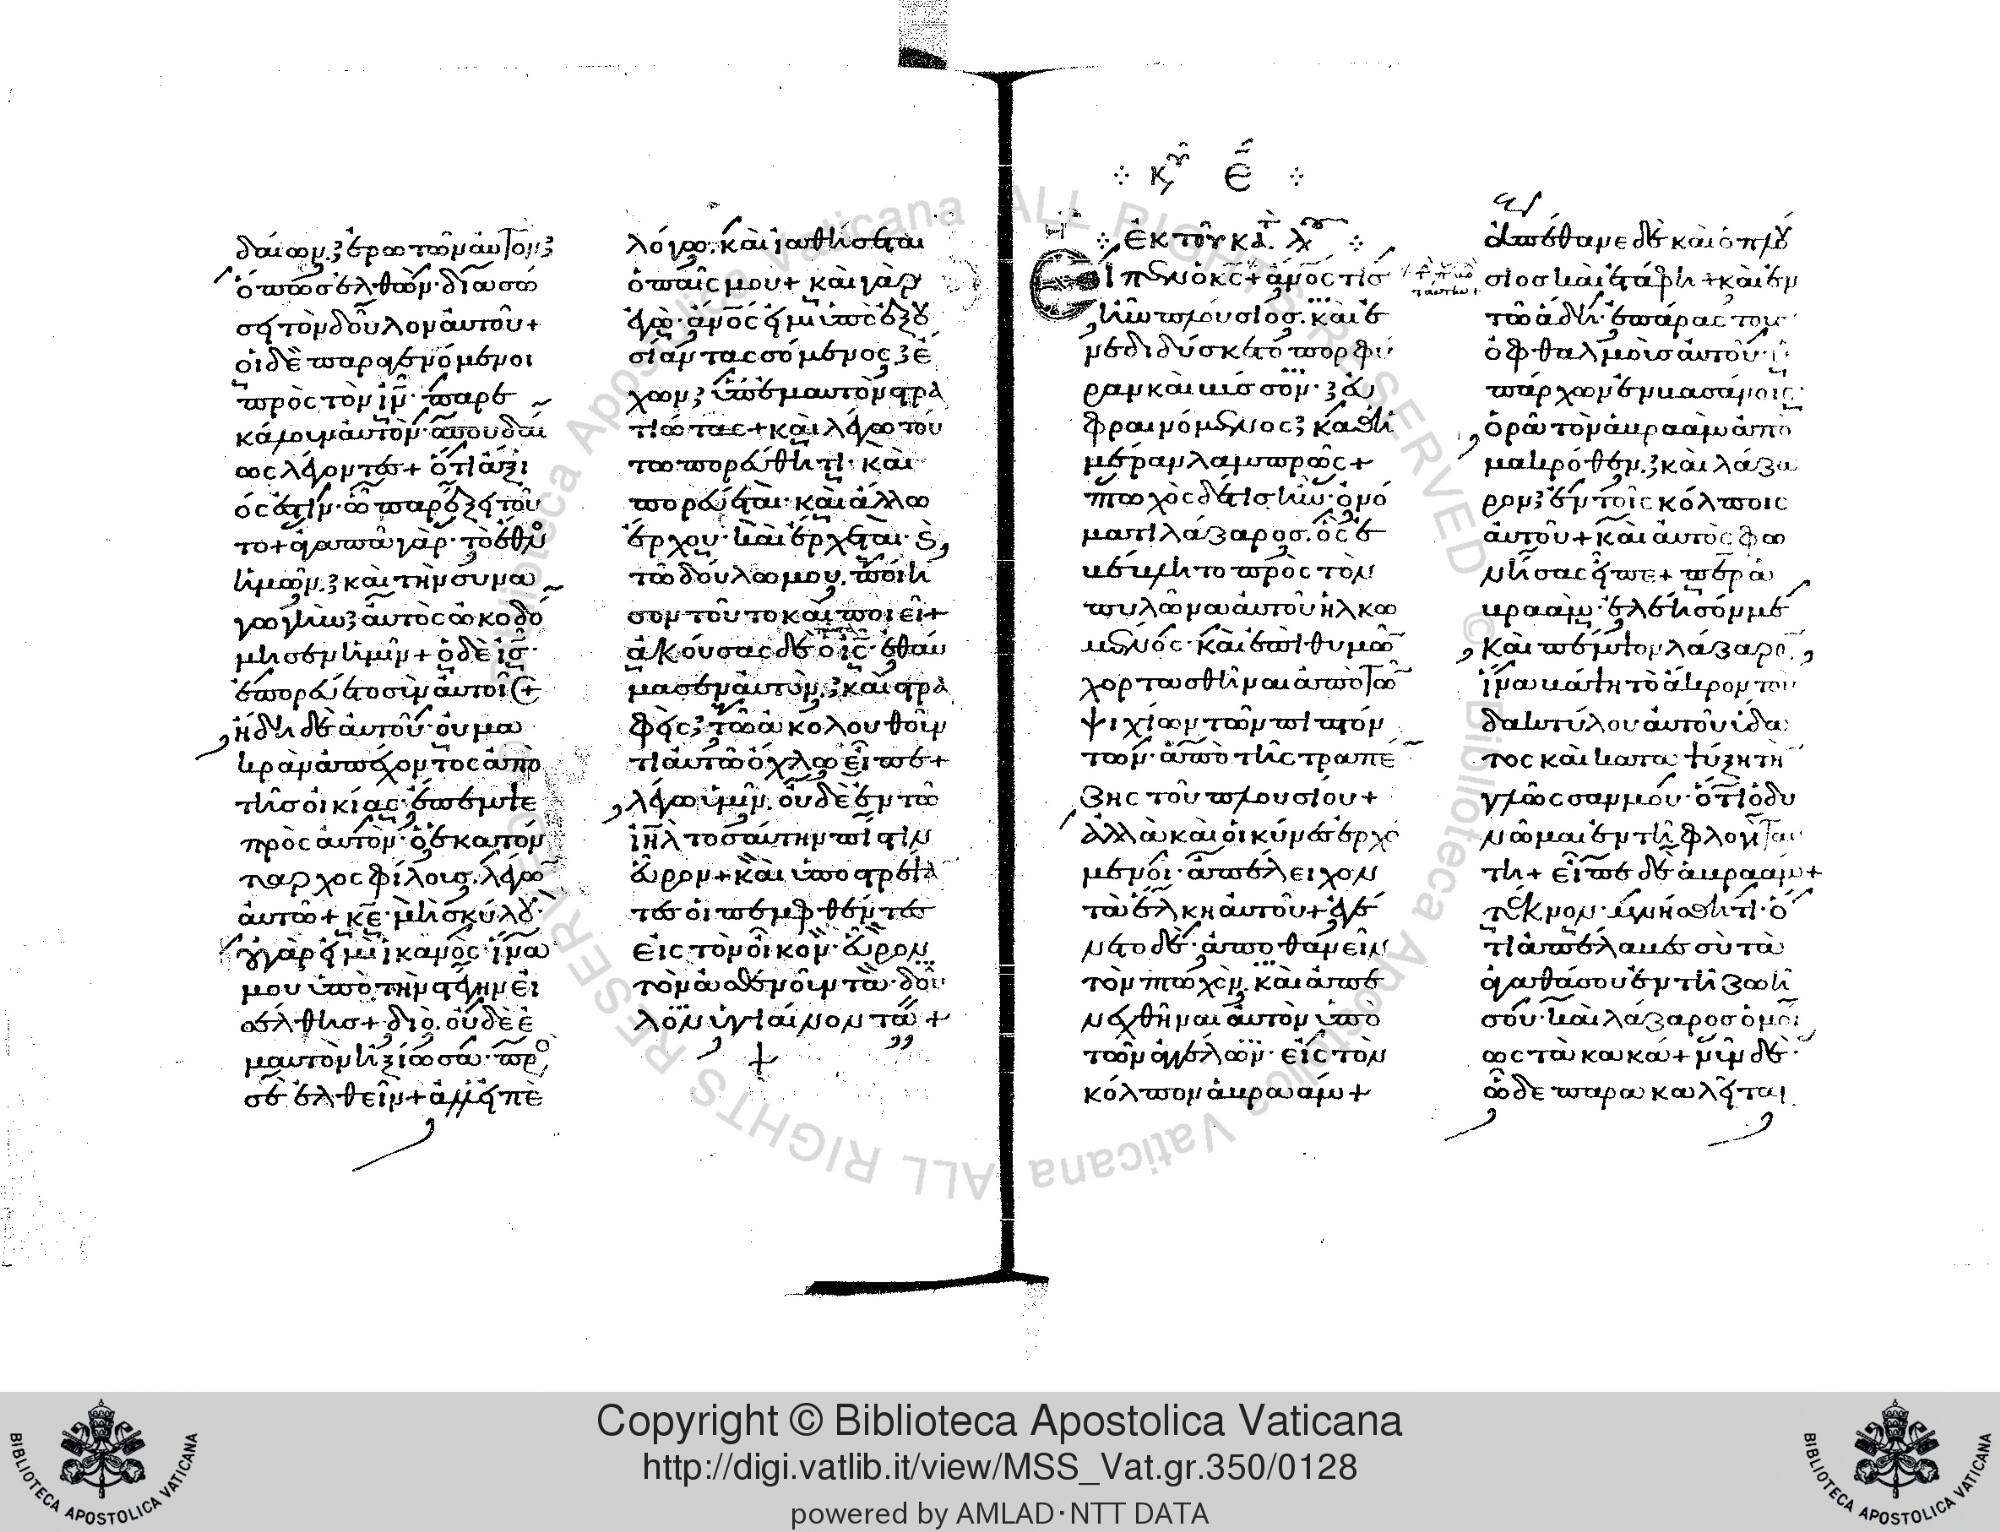 δαίων, ἐρωτῶν αὐτὸν,
ὅπως ἐλθὼν διασώ
σῃ τὸν δοῦλον αὐτοῦ+
οἱ δὲ παραγενόμενοι
πρὸς τὸν ἰν, παρε
κάλουν αὐτὸν σπουδαί
ως λέγοντες+ ὅτι ἄξι
ός ἐστιν ᾧ παρέξει τοῦ
το+ ἀγαπᾷ γὰρ τὸ ἔθνος
ἡμῶν, καὶ τὴν συνα
γωγὴν αὐτὸς ᾠκοδό
μησεν ἡμῖν+ ὁ δὲ ις
ἐπορεύετο σὺν αὐτοῖς+
ἤδη δὲ αὐτοῦ οὐ μα
κρὰν ἀπέχοντος ἀπὸ
τῆς οἰκίας, ἔπεμψε
πρὸς αὐτὸν ὁ ἑκατόν
ταρχος φίλους, λέγων
αὐτῷ+ κε μὴ σκύλου
οὐ γάρ εἰμι ἱκανὸς ἵνα
μου ὑπὸ τὴν στέγην εἰ
σέλθῃς+ διὸ οὐδὲ ἐ
μαυτὸν ἠξίωσα πρός
σὲ ἐλθεῖν+ ἀλλ' εἰπὲ
λόγῳ, καὶ ἰαθήσεται
ὁ παῖς μου+ καὶ γὰρ
ἐγὼ ανος εἰμι ὑπὸ ἐξου
σίαν τασσόμενος, ἔ
χων ὑπ' ἐμαυτὸν στρα
τιώτας+ καὶ λέγω τού
τῳ πορεύθητι καὶ
πορεύεται καὶ ἄλλῳ
ἔρχου καὶ ἔρχεται καὶ
τῷ δούλῳ μου, ποίη
σον τοῦτο καὶ ποιεῖ+
ἀκούσας δὲ ὁ ις ἐθαύ
μασεν αὐτὸν, καὶ στρα
φεὶς, τῷ ἀκολουθοῦν
τι αὐτῷ ὄχλῳ εἶπε+
λέγω ὑμῖν, οὐδὲ ἐν τῷ
ιηλ τοσαύτην πίστιν
εὗρον+ καὶ ὑποστρέψαν
τες οἱ πεμφθέντες
εἰς τὸν οἶκον εὗρον
τὸν ἀσθενοῦντα δοῦ
λον ὑγιαίνοντα+
κυ ε
ἐκ τοῦ κατ λου
Εἶπεν ὁ κς+ ανος τις
ἦν πλούσιος, καὶ ἐ
νεδιδύσκετο πορφύ
ραν καὶ βύσσον, εὐ
φραινόμενος καθ' ἡ
μέραν λαμπρῶς+
πτωχὸς δέ τις ἦν ὀνό
ματι λάζαρος, ὃς ἐ
βέβλητο πρὸς τὸν
πυλῶνα αὐτοῦ ἡλκω
μένος καὶ ἐπιθυμῶν
χορτασθῆναι ἀπὸ τῶν
ψιχίων τῶν πιπτόν
των ἀπὸ τῆς τραπέ
ζης τοῦ πλουσίου+
ἀλλὰ καὶ οἱ κύνες ἐρχό
μενοι ἀπέλειχον
τὰ ἕλκη αὐτοῦ+ ἐγέ
νετο δὲ ἀποθανεῖν
τὸν πτωχὸν, καὶ ἀπε
νεχθῆναι αὐτὸν ὑπὸ
τῶν ἀγγέλων εἰς τὸν
κόλπον ἀβραάμ+
ἀπέθανε δὲ καὶ ὁ πλού
σιος καὶ ἐτάφη+ καὶ ἐν
τῷ ᾅδῃ ἐπάρας τοὺς
ὀφθαλμοὺς αὐτοῦ ὑ
πάρχων ἐν βασάνοις
ὁρᾷ τὸν ἀβραὰμ ἀπὸ
μακρόθεν, καὶ λάζα
ρον ἐν τοῖς κόλποις
αὐτοῦ+ καὶ αὐτὸς φω
νήσας εἶπε+ περ ἀ
βραάμ ἐλέησόν με
καὶ πέμψον λάζαρον,
ἵνα βάψῃ τὸ ἄκρον τοῦ
δακτύλου αὐτοῦ ὕδα
τος καὶ καταψύξῃ τὴν
γλῶσσάν μου ὅτι ὀδυ
νῶμαι ἐν τῇ φλογὶ ταύ
τῃ+ εἶπε δὲ ἀβραάμ+
τέκνον μνήσθητι ὅ
τι ἀπέλαβες σὺ τὰ
ἀγαθά σου ἐν τῇ ζωῇ
σου καὶ λάζαρος ὁμοί
ως τὰ κακά+ νῦν δὲ
ὧδε παρακαλεῖται
Copyright © Biblioteca Apostolica Vaticana
http://digi.vatlib.it/view/MSS_Vat.gr.350/0128
powered by AMLAD·NTT DATA
BIBLIOTECA APOSTOLICA VATICANA
BIBLIOTECA APOSTOLICA VATICANA